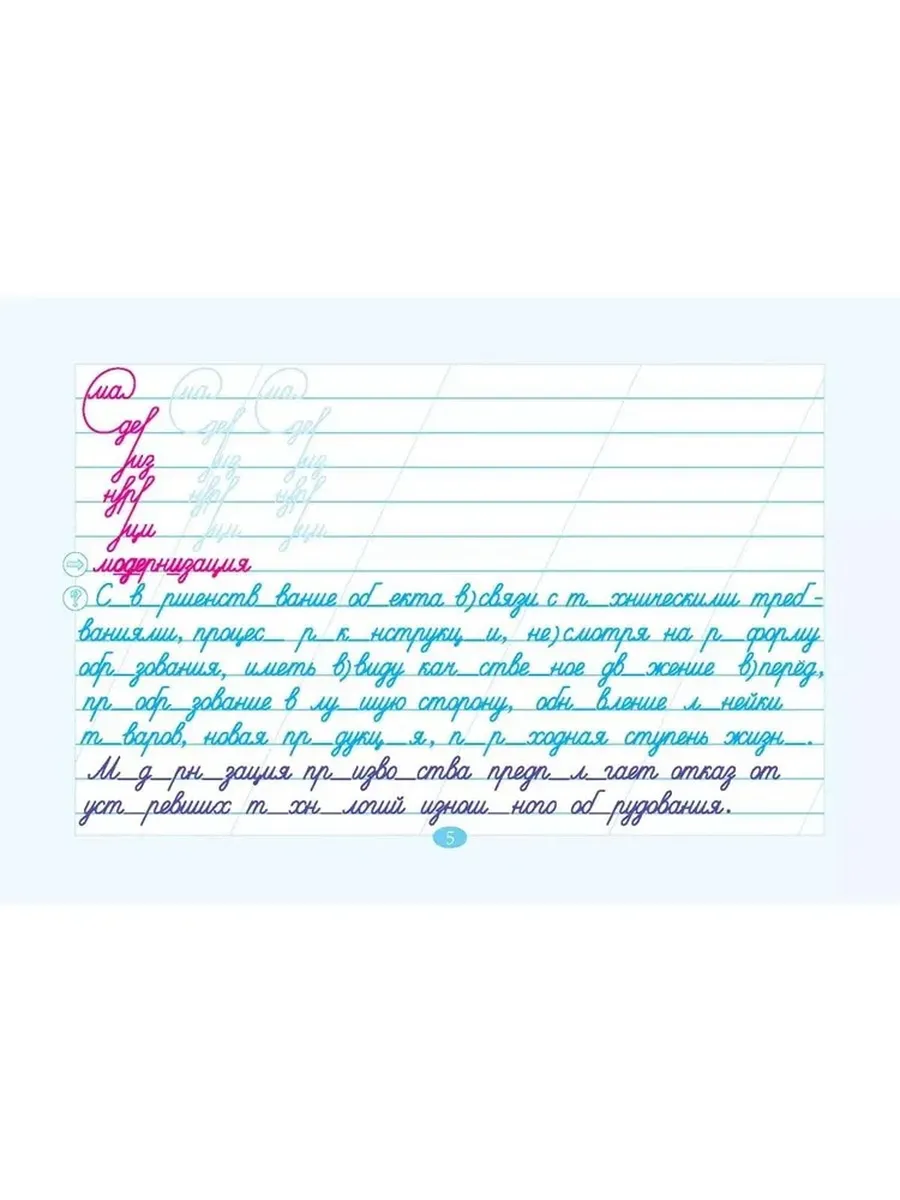 ма ма ма
дер дер дер
низ низ низ
нур нур нур
ци ци ци
модернизация
С_в_ршенств_вание об_екта в)связи с т_хническими треб-
ваниями, процес_ р_к_нструкц_и, не)смотря на р_форму
обр_зования, иметь в)виду кач_стве_ное дв_жение в)перёд,
пр_обр_зование в лу_шую сторону, обн_вление л_нейки
т_варов, новая пр_дукц_я, п_р_ходная ступень жизн_.
М_д_рн_зация пр_изво_ства предп_л_гает отказ от
уст_ревших т_хн_логий изнош_ного об_рудования.
5